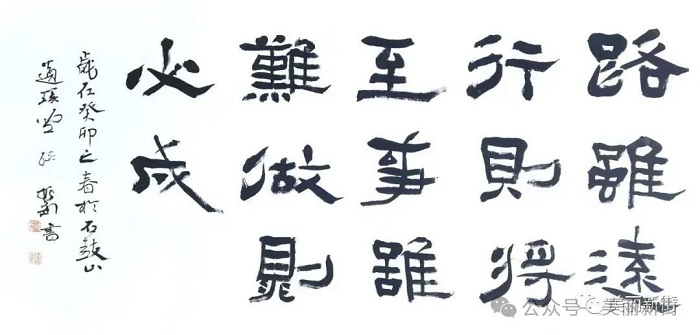 路雖遠
行則將
至事雖
難做則
必成
歲在癸卯之春於石鼓山
書
公众号 美丽新街